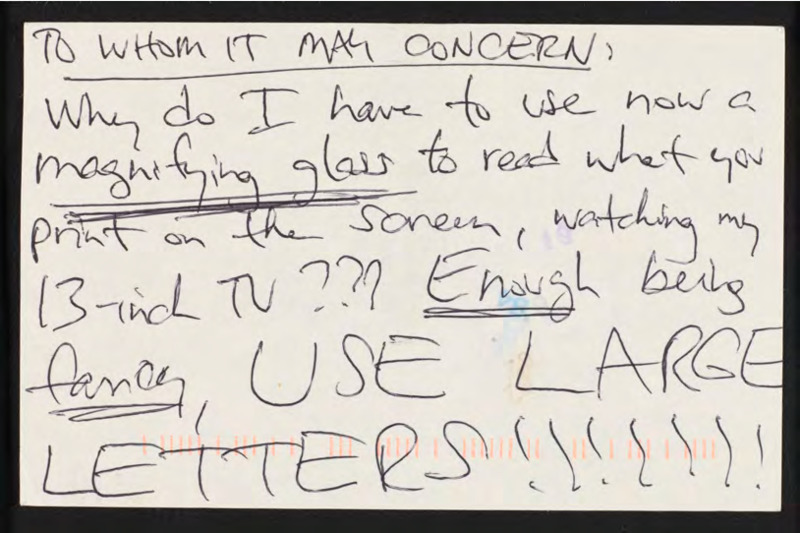 TO WHOM IT MAY CONCERN:
Why do I have to use now a
magnifying glass to read what you
print on the screen, watching my
13-inch TV??? Enough being
fancy, USE LARGE
LETTERS!!!!!!!